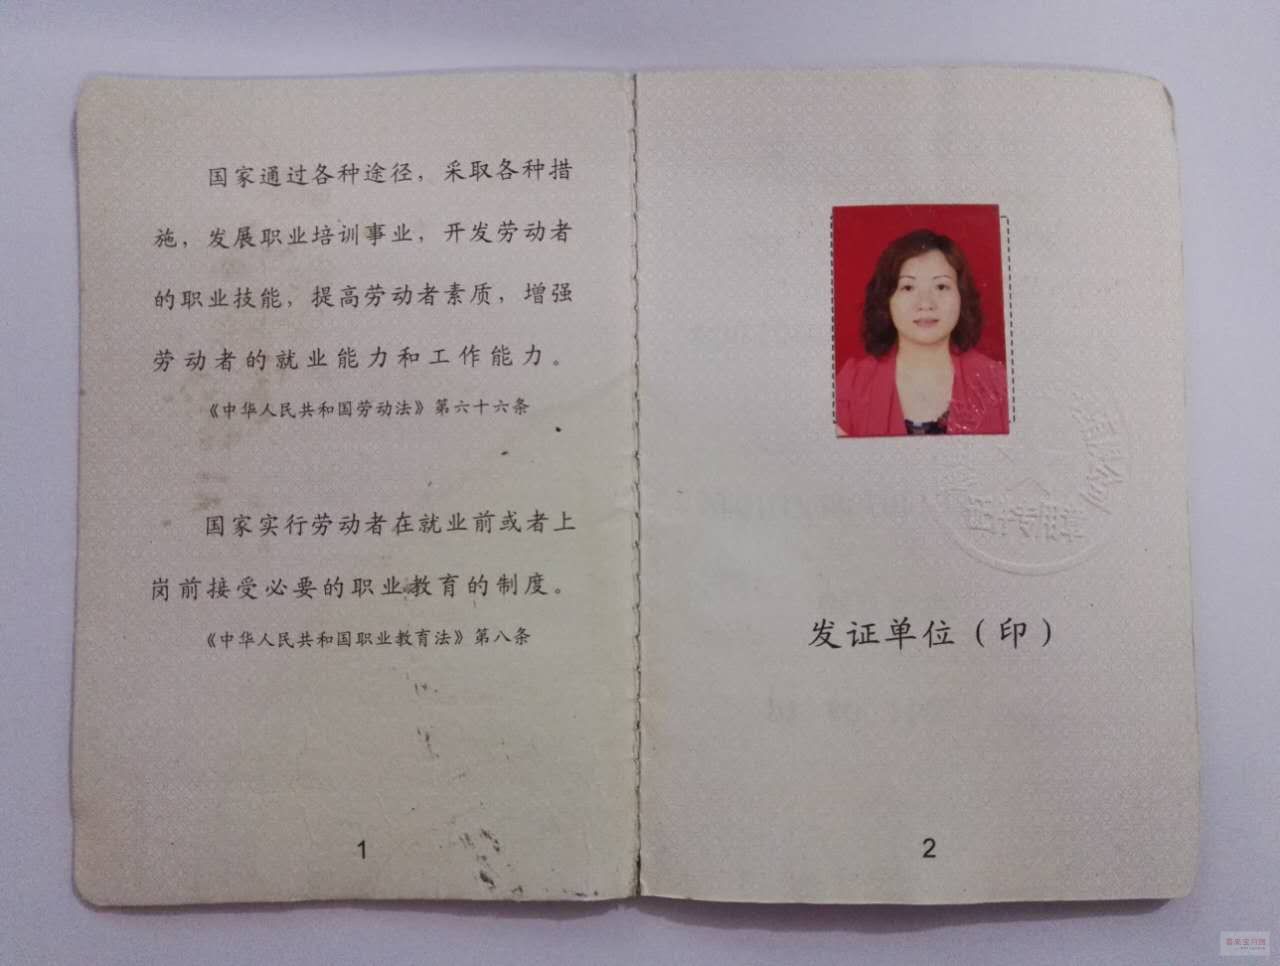 国家通过各种途径，采取各种措
施，发展职业培训事业，开发劳动者
的职业技能，提高劳动者素质，增强
劳动者的就业能力和工作能力。
《中华人民共和国劳动法》第六十六条
国家实行劳动者在就业前或者上
岗前接受必要的职业教育的制度。
《中华人民共和国职业教育法》第八条
1
证专用章
发证单位（印）
2